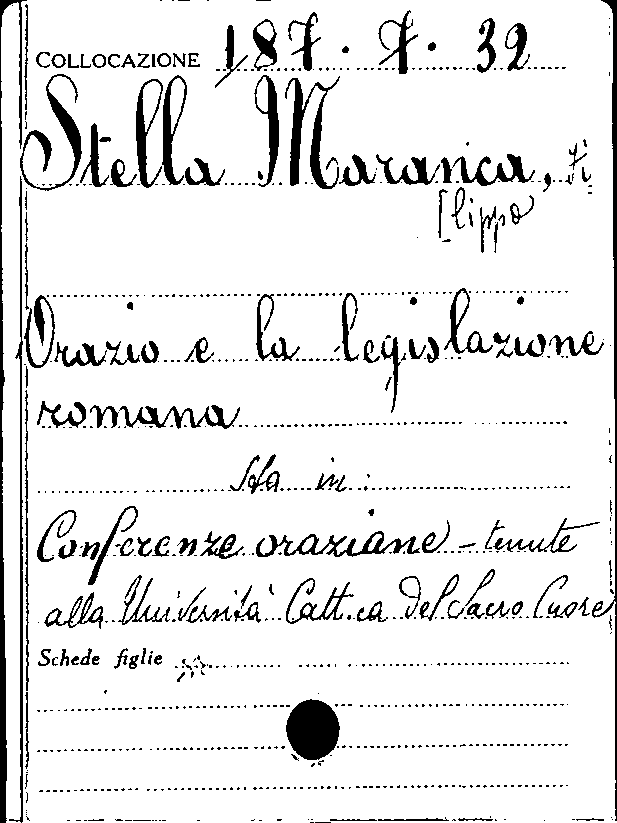 COLLOCAZIONE 187. 7. 32
Stella Maranca, Fi
[lippo
Orazio e la legislazione
romana
Sta in:
Conferenze oraziane - tenute
alla Università Catt.ca del Sacro Cuore
Schede figlie